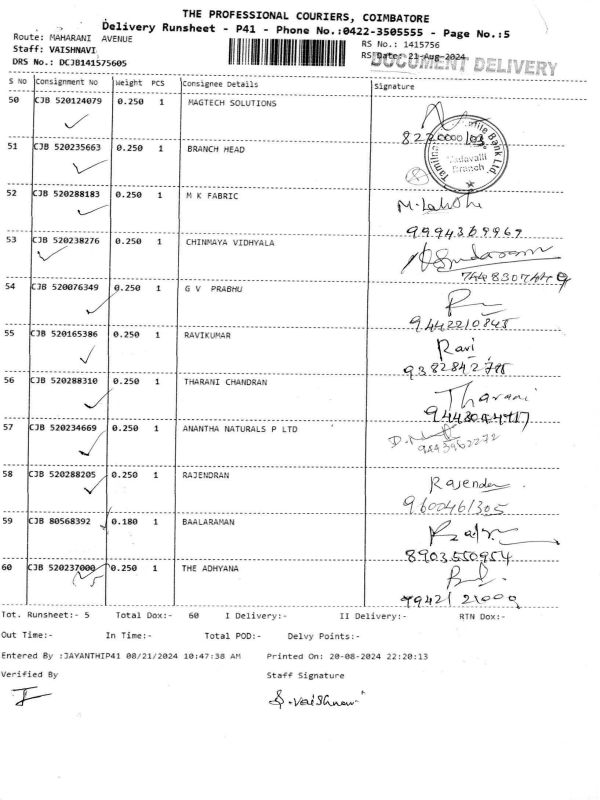 THE PROFESSIONAL COURIERS, COIMBATORE
Delivery Runsheet - P41 - Phone No.:0422-3505555 - Page No.:5
Route: MAHARANI AVENUE
RS No.: 1415756
Staff: VAISHNAVI
RS Date: 21-Aug-2024
DOCUMENT DELIVERY
DRS No.: DCJB141575605
S No Consignment No Weight PCS Consignee Details Signature
50 CJB 520124079 0.250 1 MAGTECH SOLUTIONS
51 CJB 520235663 0.250 1 BRANCH HEAD
Bank Ltd.
Vadavalli
Branch
52 CJB 520288183 0.250 1 M K FABRIC
9994369967
53 CJB 520238276 0.250 1 CHINMAYA VIDHYALA
54 CJB 520076349 0.250 1 G V PRABHU
9442210845
55 CJB 520165386 0.250 1 RAVIKUMAR Ravi
56 CJB 520288310 0.250 1 THARANI CHANDRAN Tharani
57 CJB 520234669 0.250 1 ANANTHA NATURALS P LTD
9443962272
58 CJB 520288205 0.250 1 RAJENDRAN
9600461305
59 CJB 80568392 0.180 1 BAALARAMAN
8903550954
60 CJB 520237000 0.250 1 THE ADHYANA
Tot. Runsheet:- 5 Total Dox:- 60 I Delivery:- II Delivery:- RTN Dox:-
Out Time:- In Time:- Total POD:- Delvy Points:-
Entered By :JAYANTHIP41 08/21/2024 10:47:38 AM Printed On: 20-08-2024 22:20:13
Verified By Staff Signature
S.Vaishnavi